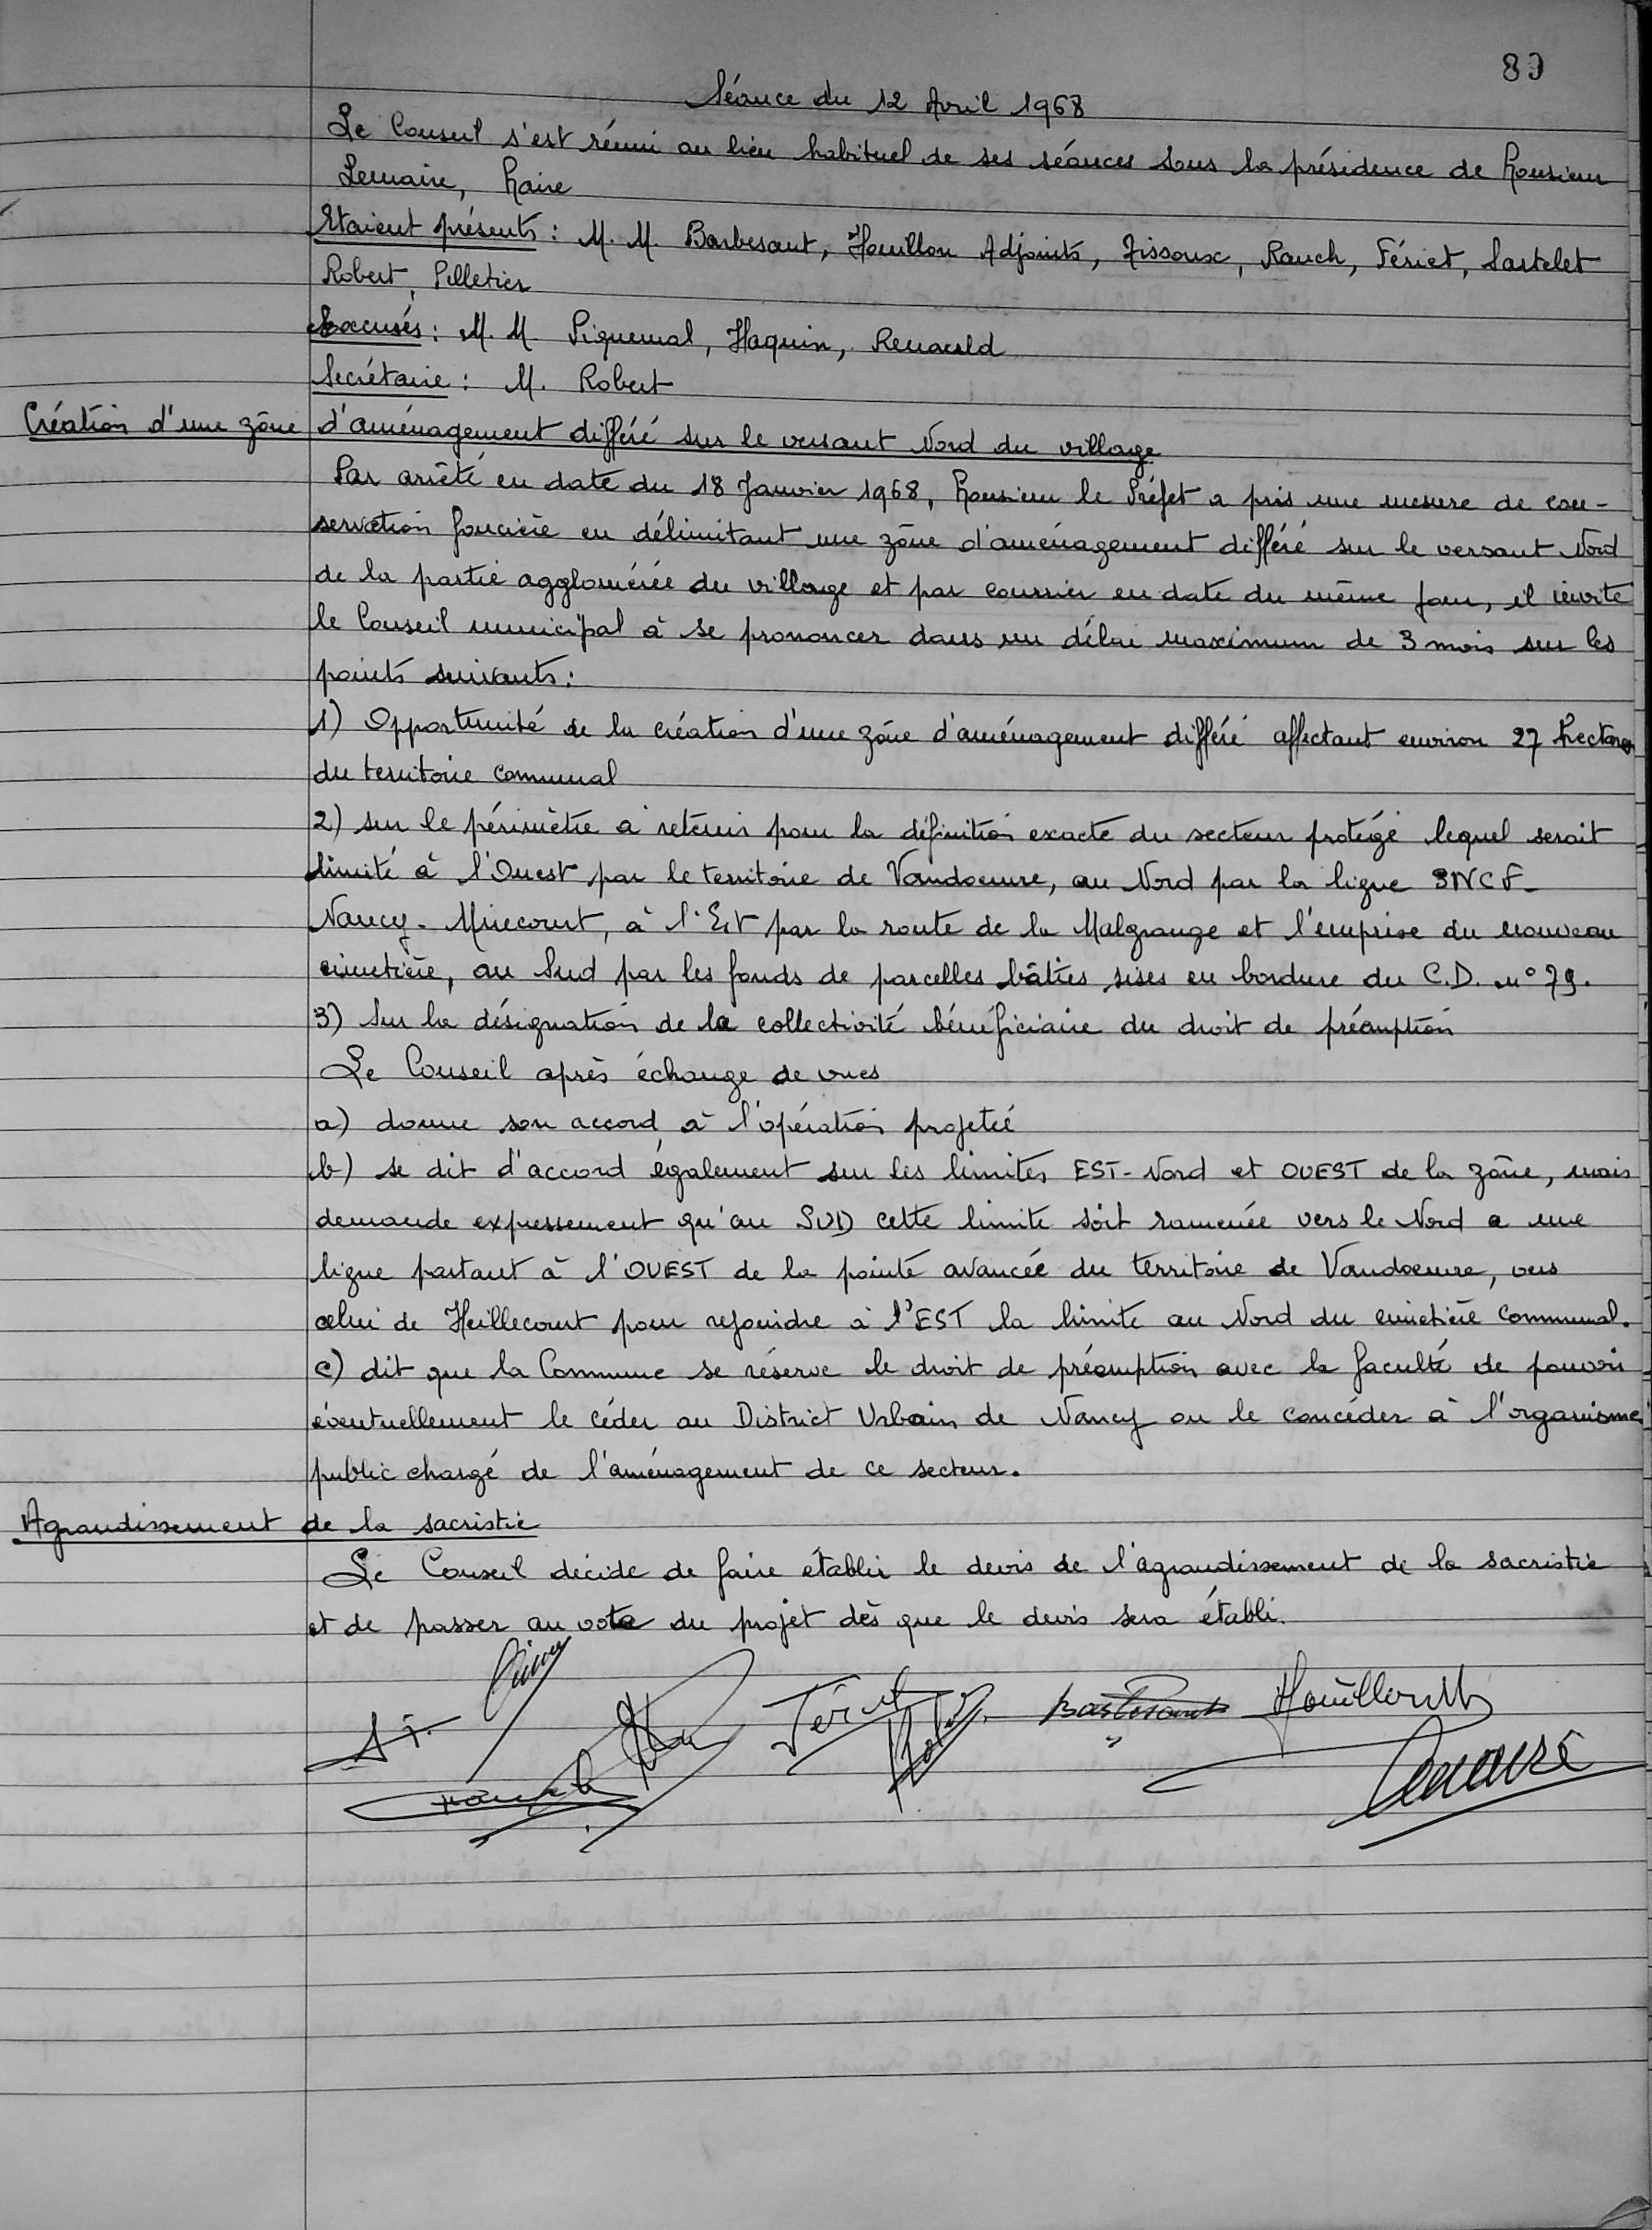 Séance du 12 Avril 1968
Le Conseil s'est réuni au lieu habituel de ses séances sous la présidence de Monsieur
Lemaire, Maire
Etaient présents : M. M. Barbesant, Houillon Adjoints, Fissoux, Rauch, Fériet, Sartelet
Robert, Pelletier
Excusés : M. M. Piquemal, Haquin, Renauld
Secrétaire : M. Robert
Création d'une zône d'aménagement différé sur le versant Nord du village
Par arrêté en date du 18 Janvier 1968, Monsieur le Préfet a pris une mesure de con-
servation foncière en délimitant une zône d'aménagement différé sur le versant Nord
de la partie agglomérée du village et par courrier en date du même jour, il invite
le Conseil municipal à se prononcer dans un délai maximum de 3 mois sur les
points suivants :
1) Opportunité de la création d'une zône d'aménagement différé affectant environ 27 hectares
du territoire communal
2) sur le périmètre à retenir pour la définition exacte du secteur protégé lequel serait
limité à l'Ouest par le territoire de Vandoeuvre, au Nord par la ligne SNCF-
Nancy-Mirecourt, à l'Est par la route de la Malgrange et l'emprise du nouveau
cimetière, au Sud par les fonds de parcelles bâties sises en bordure du C.D. n° 79.
3) Sur la désignation de la collectivité bénéficiaire du droit de préemption
Le Conseil après échange de vues
a) donne son accord à l'opération projetée
b) se dit d'accord également sur les limites EST-Nord et OUEST de la zône, mais
demande expressement qu'au SUD cette limite soit ramenée vers le Nord a une
ligne partant à l'OUEST de la pointe avancée du territoire de Vandoeuvre, vers
celui de Heillecourt pour rejoindre à l'EST la limite au Nord du cimetière communal.
c) dit que la Commune se réserve le droit de préemption avec la faculté de pouvoir
éventuellement le céder au District Urbain de Nancy ou le concéder à l'organisme
public chargé de l'aménagement de ce secteur.
Agrandissement de la sacristie
Le Conseil décide de faire établir le devis de l'agrandissement de la sacristie
et de passer au vote du projet dès que le devis sera établi.
Fériet Barbesant Houillon
Rauch Lemaire